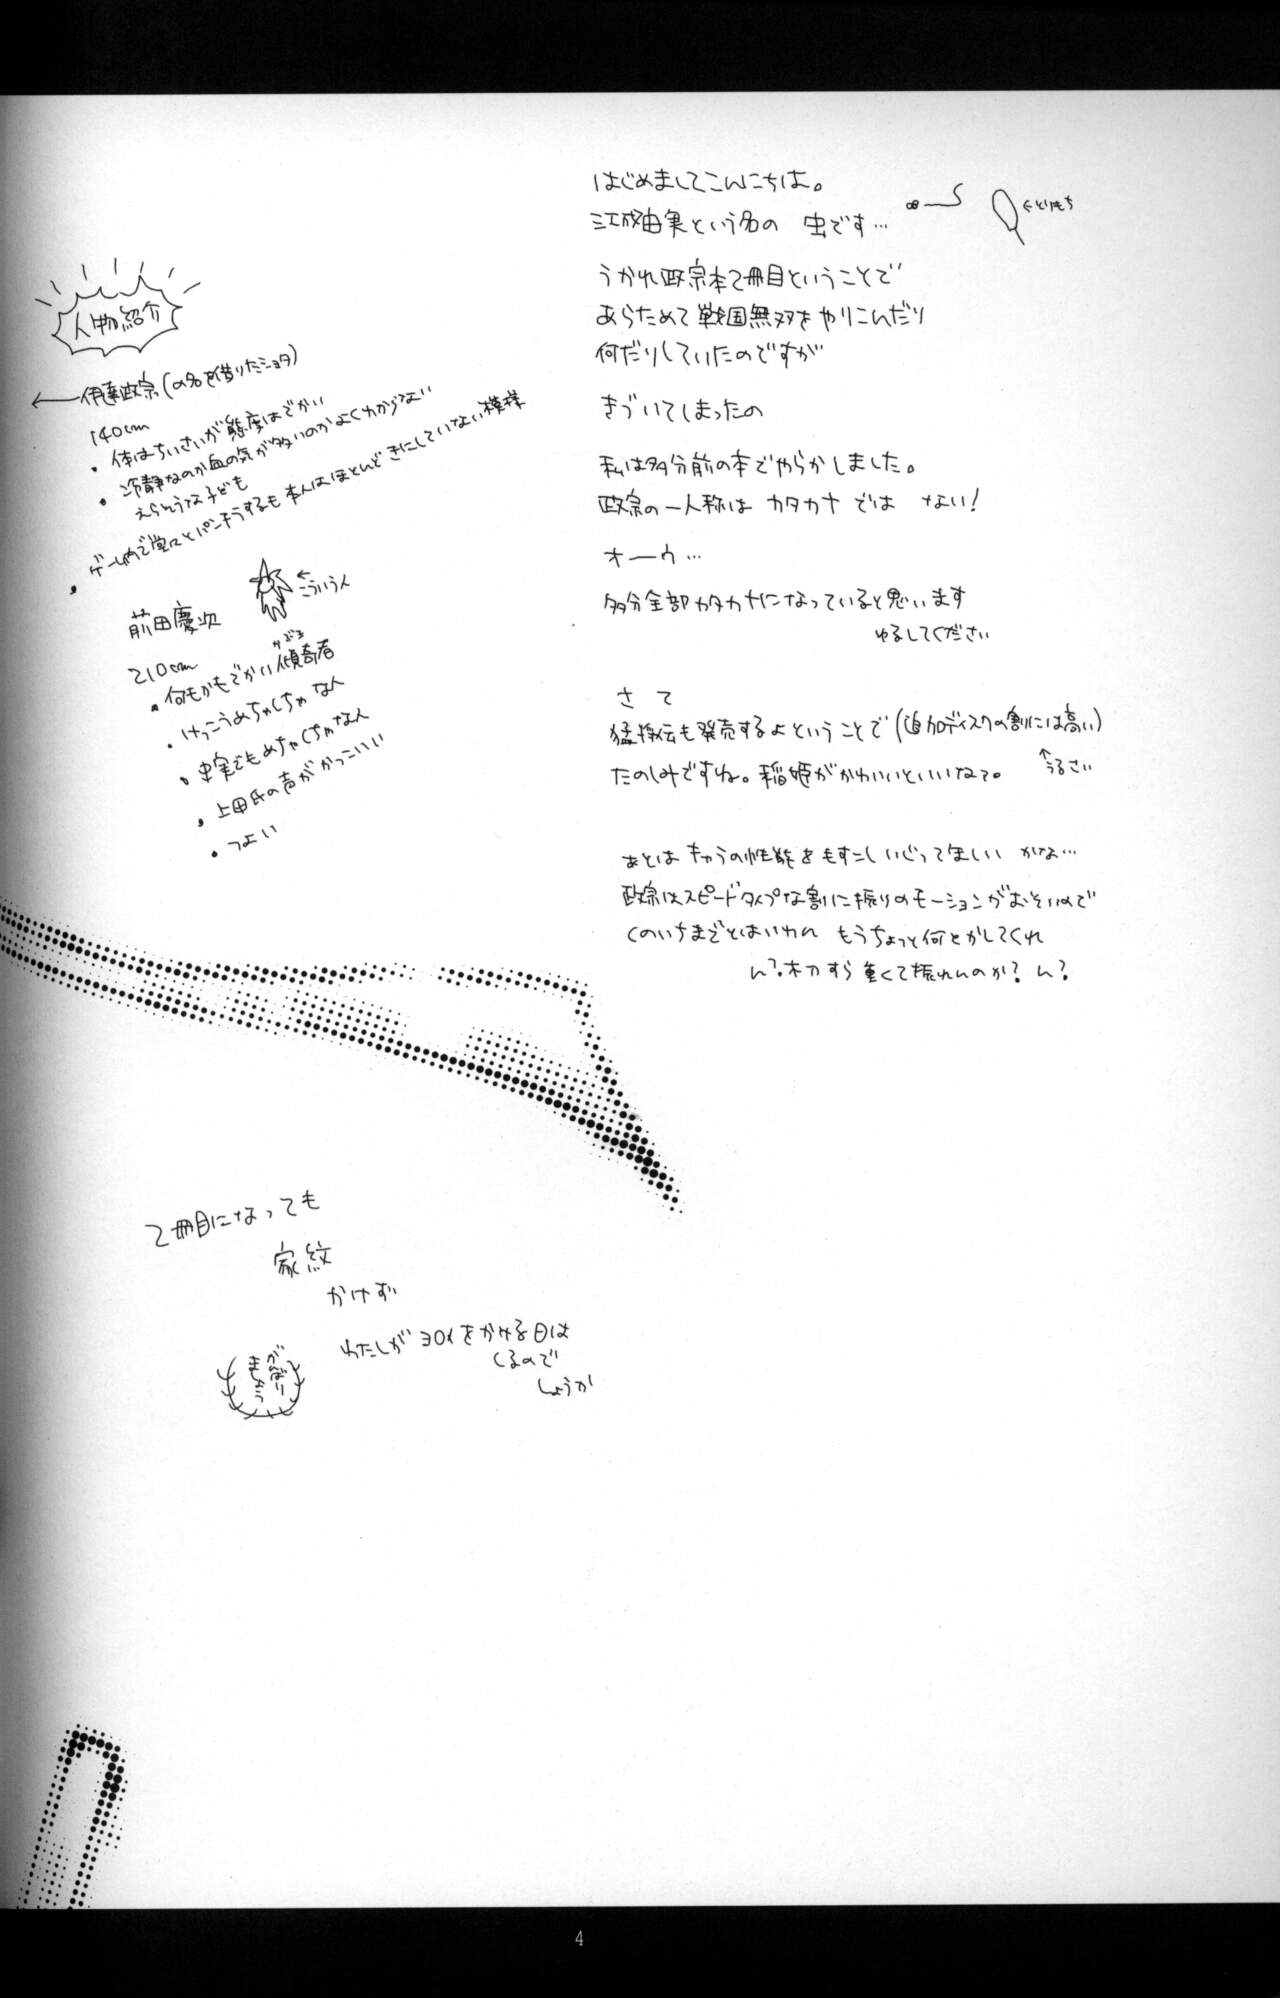 はじめましてこんにちは。
三江成由実という名の 虫です…
←とりもち
うかれ政宗本2冊目ということで
あらためて戦国無双をやりこんだり
何だりしていたのですが
きづいてしまったの
私は多分前の本でやらかしました。
政宗の一人称は カタカナ では ない!
オーウ…
多分全部カタカナになっていると思います
ゆるしてください
さて
猛将伝も発売するよということで(追加ディスクの割には高い)
↑うるさい
たのしみですね。稲姫がかわいいといいなあ。
あとは キャラの性能をもすこしいじってほしい かな…
政宗はスピードタイプな割に振りのモーションがおそいので
くのいちまでとはいわん もうちょっと何とかしてくれ
ん?木刀すら重くて振れんのか? ん?
人物紹介
←伊達政宗(の名を借りたショタ)
140cm
・体はちいさいが態度はでかい
・冷静なのか血の気が多いのかよくわからない
えらそうな子ども
・ゲーム内で堂々とパンチラするも本人はほとんどきにしていない模様
前田慶次
←こういう人
210cm
・何もかもでかい傾奇者
かぶき
・けっこうめちゃくちゃな人
・史実でもめちゃくちゃな人
・上田氏の声がかっこいい
・つよい
2冊目になっても
家紋
かけず
わたしが をかける日は
くるので
しょうか
がんばり
ましょう
4